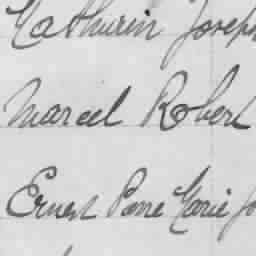 Mathurin Joseph
Marcel Robert
Ernest Pierre Marie Jo